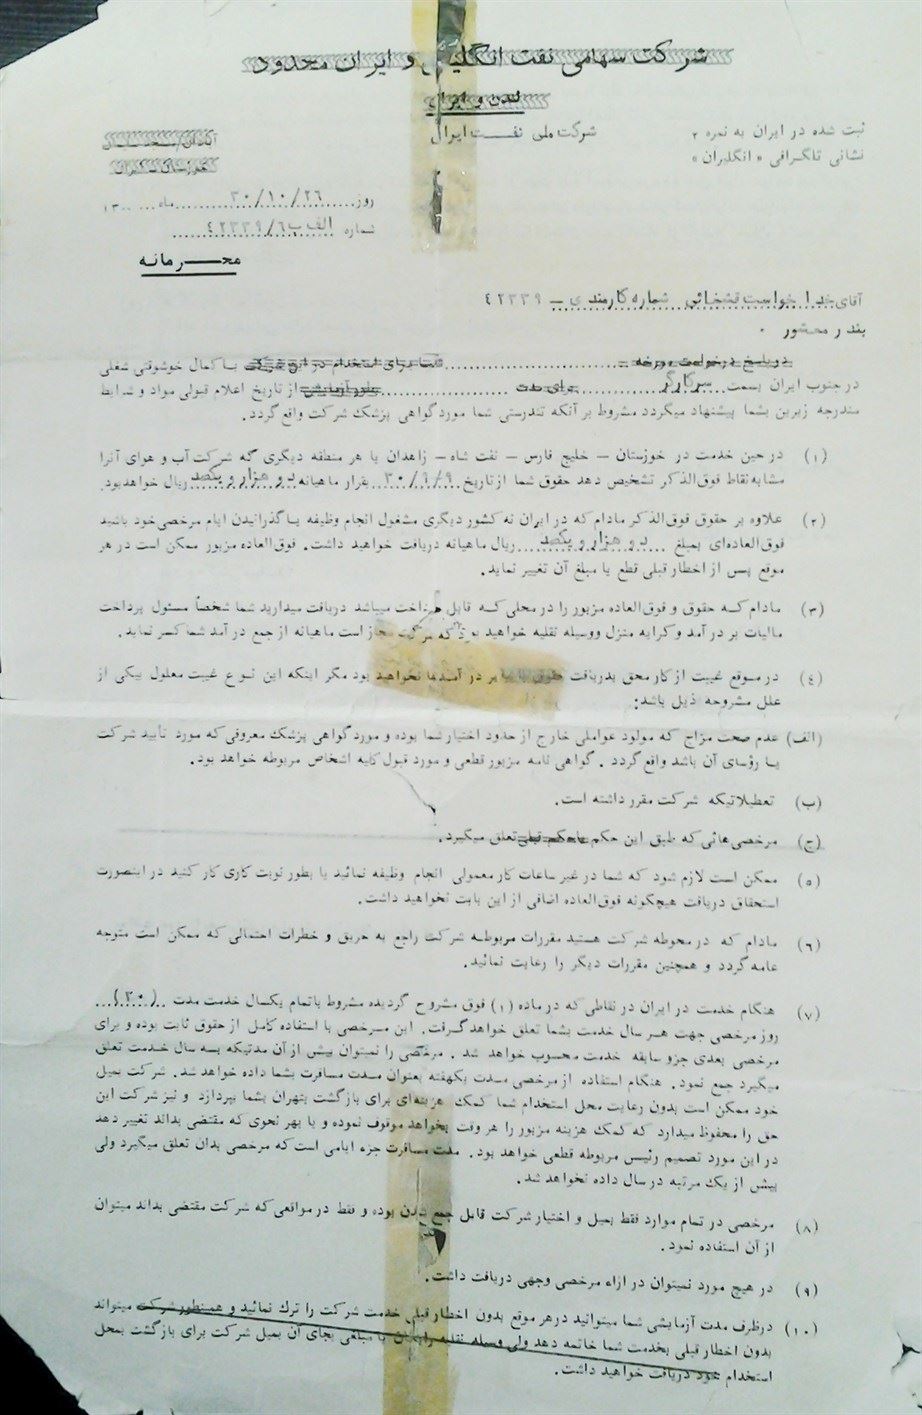 شرکت سهامی نفت انگلیس و ایران محدود
لندن و ایران
ثبت شده در ایران به نمره ۲
شرکت ملی نفت ایران
نشانی تلگرافی « انگلیران »
خوزستان - ایران
روز ۳۰/۱۰/۲۶ ماه ۱۳۰۰
شماره الف ب ۶/۴۲۳۳۹
محرمانه
آقای خدا خواست قشقائی شماره کارمندی – ۴۲۳۳۹
بندر معشور .
در پاسخ درخواست مورخه شما برای استخدام در این شرکت با کمال خوشوقتی شغلی
در جنوب ایران بسمت سرکارگر برای مدت بطور آزمایش از تاریخ اعلام قبولی مواد و شرایط
مندرجه زیرین بشما پیشنهاد میگردد مشروط بر آنکه تندرستی شما مورد گواهی پزشک شرکت واقع گردد .
(۱) در حین خدمت در خوزستان – خلیج فارس – نفت شاه – زاهدان یا هر منطقه دیگری که شرکت آب و هوای آنرا
مشابه نقاط فوق‌الذکر تشخیص دهد حقوق شما از تاریخ ۳۰/۹/۹ بقرار ماهیانه دو هزار و یکصد ریال خواهد بود.
(۲) علاوه بر حقوق فوق‌الذکر مادام که در ایران نه کشور دیگری مشغول انجام وظیفه یا گذرانیدن ایام مرخصی خود باشید
فوق‌العاده‌ای بمبلغ دو هزار و یکصد ریال ماهیانه دریافت خواهید داشت. فوق‌العاده مزبور ممکن است در هر
موقع پس از اخطار قبلی قطع یا مبلغ آن تغییر نماید.
(۳) مادام که حقوق و فوق‌العاده مزبور را در محلی که قابل پرداخت میباشد دریافت میدارید شما شخصاً مسئول پرداخت
مالیات بر درآمد و کرایه منزل و وسیله نقلیه خواهید بود که شرکت مجاز است ماهیانه از جمع درآمد شما کسر نماید.
(۴) در موقع غیبت از کار محق بدریافت حقوق یا سایر درآمدها نخواهید بود مگر اینکه این نوع غیبت معلول یکی از
علل مشروحه ذیل باشد:
(الف) عدم صحت مزاج که مولود عواملی خارج از حدود اختیار شما بوده و مورد گواهی پزشک معروفی که مورد تأیید شرکت
یا رؤسای آن باشد واقع گردد . گواهی نامه مزبور قطعی و مورد قبول کلیه اشخاص مربوطه خواهد بود.
(ب) تعطیلاتیکه شرکت مقرر داشته است.
(ج) مرخصی‌هائی که طبق این حکم یا حکم قبلی تعلق میگیرد.
(۵) ممکن است لازم شود که شما در غیر ساعات کار معمولی انجام وظیفه نمائید یا بطور نوبت کاری کار کنید در اینصورت
استحقاق دریافت هیچگونه فوق‌العاده اضافی از این بابت نخواهید داشت.
(۶) مادام که در محوطه شرکت هستید مقررات مربوطه شرکت راجع به حریق و خطرات احتمالی که ممکن است متوجه
عامه گردد و همچنین مقررات دیگر را رعایت نمائید.
(۷) هنگام خدمت در ایران در نقاطی که در ماده (۱) فوق مشروح گردیده مشروط باتمام یکسال خدمت مدت (۳۰)
روز مرخصی جهت هر سال خدمت بشما تعلق خواهد گرفت. این مرخصی با استفاده کامل از حقوق ثابت بوده و برای
مرخصی بعدی جزو سابقه خدمت محسوب خواهد شد . مرخصی را نمیتوان بیش از آن مدتیکه بسه سال خدمت تعلق
میگیرد جمع نمود. هنگام استفاده از مرخصی مدت یکهفته بعنوان مدت مسافرت بشما داده خواهد شد. شرکت بمیل
خود ممکن است بدون رعایت محل استخدام شما کمک هزینه‌ای برای بازگشت بتهران بشما بپردازد و نیز شرکت این
حق را محفوظ میدارد که کمک هزینه مزبور را هر وقت بخواهد موقوف نموده و یا بهر نحوی که مقتضی بداند تغییر دهد
در این مورد تصمیم رئیس مربوطه قطعی خواهد بود. مدت مسافرت جزء ایامی است که مرخصی بدان تعلق میگیرد ولی
بیش از یک مرتبه در سال داده نخواهد شد.
(۸) مرخصی در تمام موارد فقط بمیل و اختیار شرکت قابل جمع شدن بوده و فقط در مواقعی که شرکت مقتضی بداند میتوان
از آن استفاده نمود.
(۹) در هیچ مورد نمیتوان در ازاء مرخصی وجهی دریافت داشت.
(۱۰) در ظرف مدت آزمایشی شما میتوانید در هر موقع بدون اخطار قبلی خدمت شرکت را ترک نمائید و همینطور شرکت میتواند
بدون اخطار قبلی بخدمت شما خاتمه دهد ولی وسیله نقلیه رایگان یا مبلغی بجای آن بمیل شرکت برای بازگشت بمحل
استخدام خود دریافت خواهید داشت.